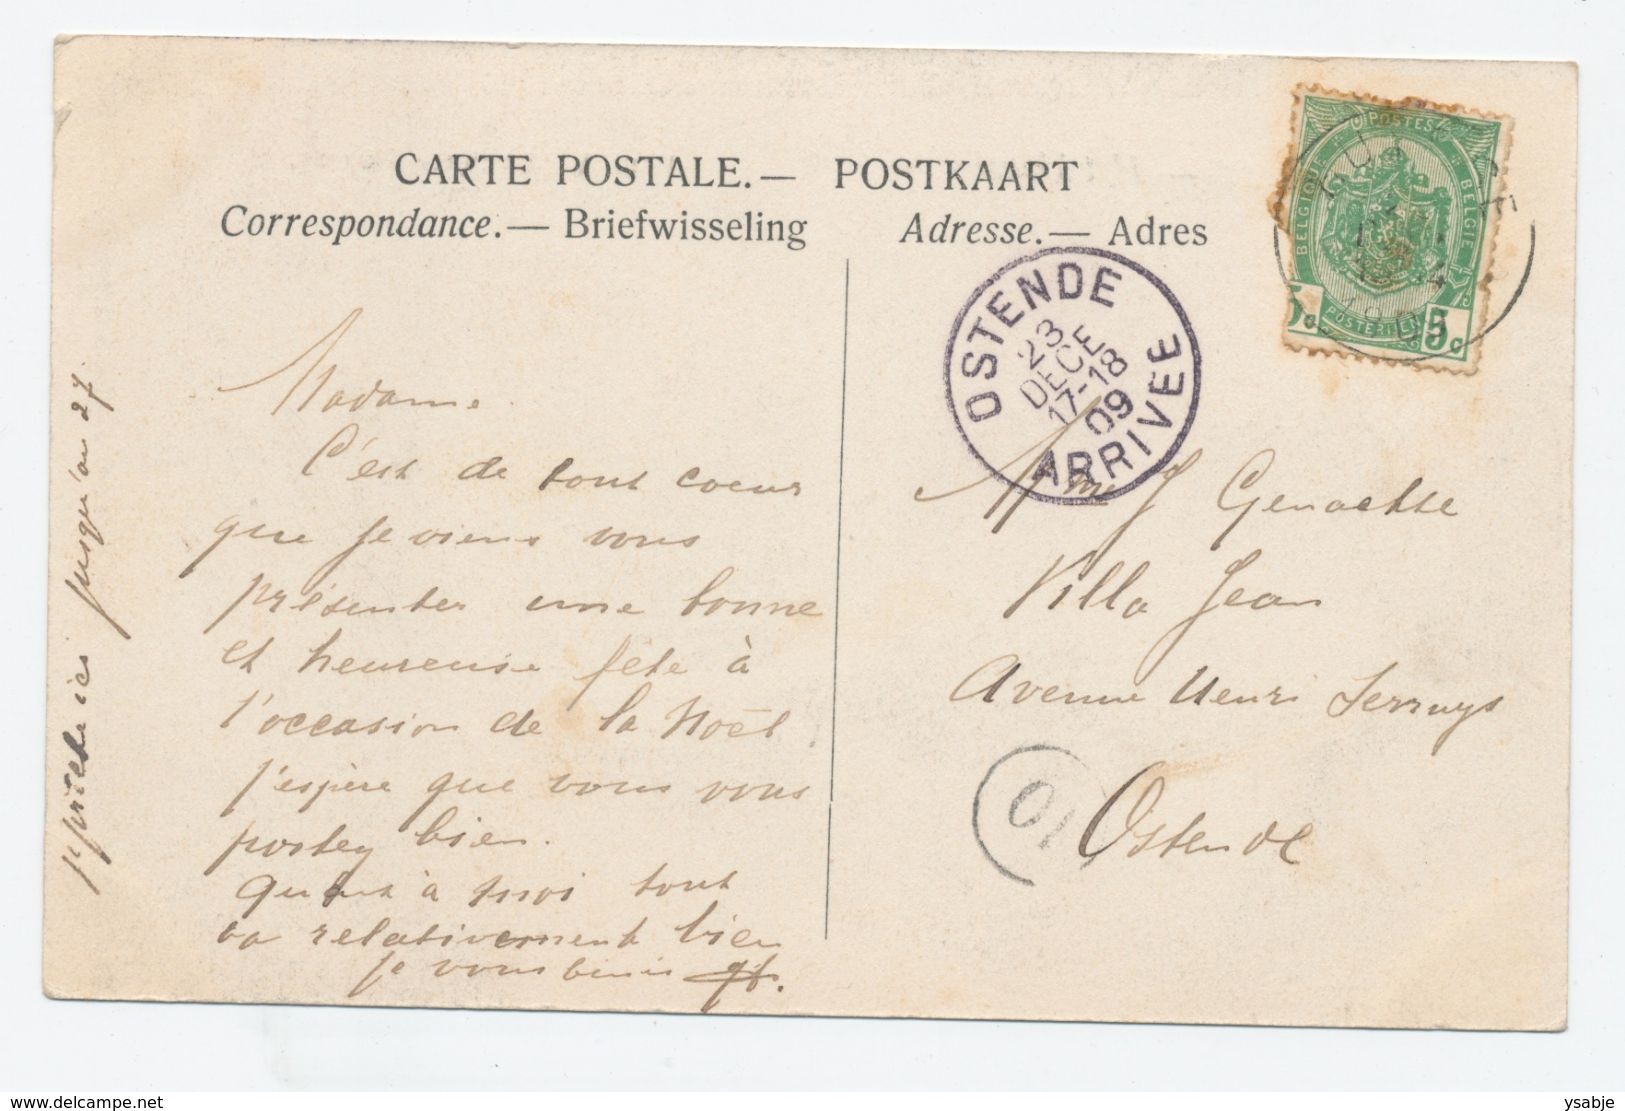 CARTE POSTALE.— POSTKAART
Correspondance.— Briefwisseling
Adresse.— Adres
POSTES
BELGIQUE
BELGIE
5c
OSTENDE
23
DECE
17-18
09
ARRIVEE
Madame.
C'est de tout coeur
que je viens vous
présenter une bonne
et heureuse fête à
l'occasion de la Noël.
j'espère que vous vous
portez bien.
Quant à moi tout
va relativement bien
je vous bénis
prêche ici jusqu'au 27.
Mme J
Villa Jean
Avenue Henri Serruys
Ostende
10
delcampe.net
ysabje